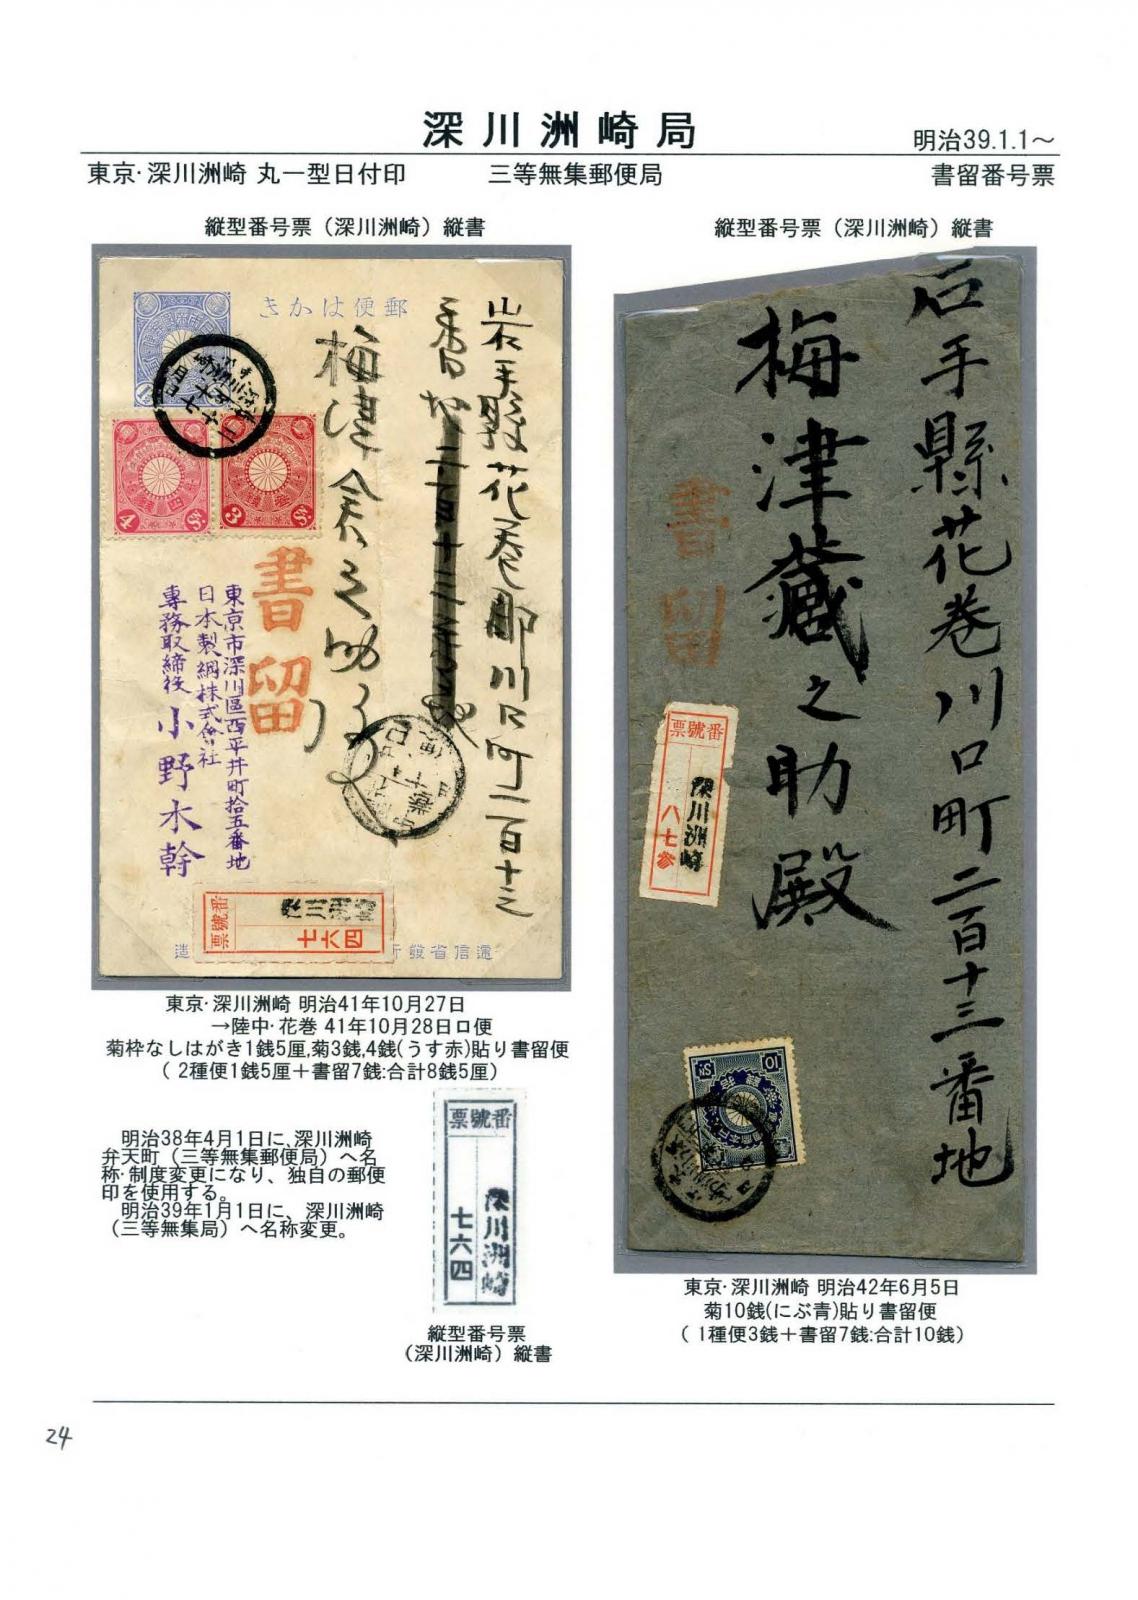 深川洲崎局
明治39.1.1～
東京・深川洲崎 丸一型日付印
三等無集郵便局
書留番号票
縦型番号票（深川洲崎）縦書
縦型番号票（深川洲崎）縦書
きかは便郵
岩手縣花巻郡川口町二百十三
番地
梅津
書留
東京市深川區西平井町拾五番地
日本製綱株式會社
專務取締役 小野木幹
4
3
番號票
深川洲崎
七六四
東京・深川洲崎 明治41年10月27日
→陸中・花巻 41年10月28日ロ便
菊枠なしはがき1銭5厘,菊3銭,4銭(うす赤)貼り書留便
（ 2種便1銭5厘＋書留7銭:合計8銭5厘）
明治38年4月1日に､深川洲崎
弁天町（三等無集郵便局）へ名
称･制度変更になり、独自の郵便
印を使用する。
明治39年1月1日に、深川洲崎
（三等無集局）へ名称変更。
番號票
深川洲崎
七六四
縦型番号票
（深川洲崎）縦書
岩手縣花巻川口町二百十三番地
梅津藏之助殿
書留
番號票
深川洲崎
八七参
10
東京・深川洲崎 明治42年6月5日
菊10銭(にぶ青)貼り書留便
（ 1種便3銭＋書留7銭:合計10銭）
24